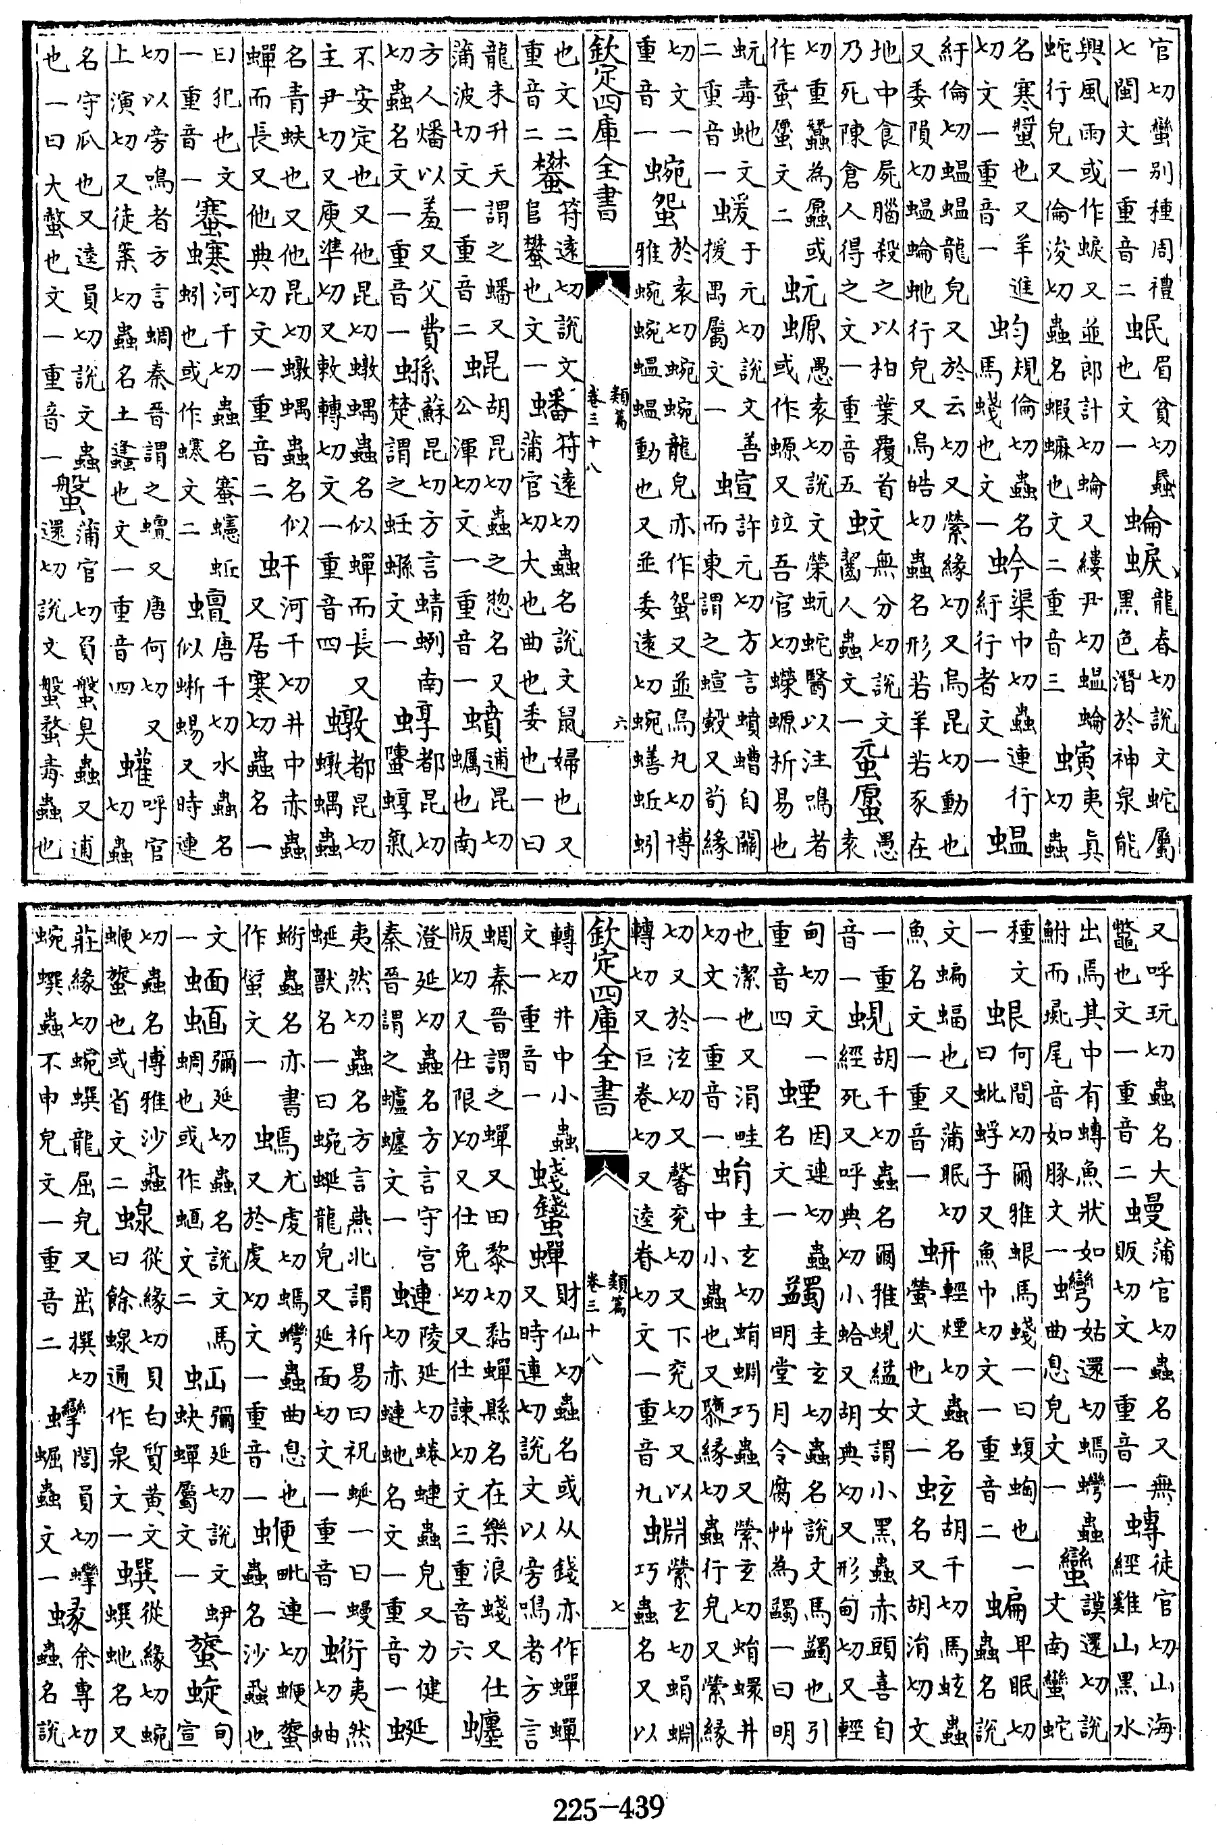 官切蠻別種周禮
七閩文一重音二
眉貧切蟁
也文一
蜦蜧
龍春切說文蛇屬
黑色潛於神泉能
興風雨或作蜧又並郎計切蜦又縷尹切蝹蜦
蛇行皃又倫浚切蟲名蝦蟆也文二重音三
螾
夷真
切蟲
名寒螿也又羊進
切文一重音一
蚐
規倫切蟲名
馬蛷也文一
蚙
渠巾切蟲連行
紆行者文一
蝹
紆倫切蝹蝹龍皃又於云切又縈緣切又烏昆切動也
又委隕切蝹蜦虵行皃又烏皓切蟲名形若羊若豕在
地中食屍腦殺之以柏葉覆首
乃死陳倉人得之文一重音五
蚊
無分切說文
齧人蟲文一
愚
袁
切重蠶為或
作文二
蚖螈
愚袁切說文榮蚖蛇醫以注鳴者
或作螈又竝吾官切蠑螈析易也
蚖毒虵文
二重音一
蝯
于元切說文善
援禺屬文一
蝖
許元切方言蠀螬自關
而東謂之蝖螜又荀緣
切文一
重音一
蜿
於袁切蜿蜿龍皃亦作又並烏丸切博
雅蜿蜿蝹蝹動也又並委遠切蜿蟮蚯蚓
欽定四庫全書
類篇
卷三十八
六
也文二
重音二
蠜
符遠切說文
𨸏蠜也文一
蟠
符遠切蟲名說文鼠婦也又
蒲官切大也曲也委也一曰
龍未升天謂之蟠又
蒲波切文一重音二
蜫
胡昆切蟲之惣名又
公渾切文一重音一
蟦
逋昆切
蠣也南
方人燔以羞又父費
切蟲名文一重音一
蘇昆切方言蜻蛚南
楚謂之文一
蜳
都昆切
螴蜳氣
不安定也又他昆切蝺蟲名似蟬而長又
主尹切又庾準切又敕轉切文一重音四
都昆切
蝺蟲
名青蚨也又他昆切蝺蟲名似
蟬而長又他典切文一重音二
虷
河干切井中赤蟲
又居寒切蟲名一
曰犯也文
一重音一
河干切蟲名蟪蚯
蚓也或作文二
蟺
唐干切水蟲名
似蜥蜴又時連
切以旁鳴者方言蜩秦晉謂之蟺又唐何切又
上演切又徒案切蟲名土蠭也文一重音四
蠸
呼官
切蟲
名守瓜也又逵員切說文蟲
也一曰大螫也文一重音一
螌
蒲官切負螌臭蟲又逋
還切說文螌蝥毒蟲也
又呼玩切蟲名大
鼈也文一重音二
蟃
蒲官切蟲名又無
販切文一重音一
徒官切山海
經雞山黑水
出焉其中有魚狀如
鮒而彘尾音如豚文一
姑還切蟲
曲息皃文一
蠻
謨還切說
文南蠻蛇
種文
一
蛝
何間切爾雅蛝馬蠽一曰蝮蜪也一
曰蚍蜉子又魚巾切文一重音二
蝙
卑眠切
蟲名說
文蝙蝠也又蒲眠切
魚名文一重音一
蚈
輕煙切蟲名
螢火也文一
蚿
胡千切馬蚿蟲
名又胡涓切文
一重
音一
蜆
胡千切蟲名爾雅蜆縊女謂小黑蟲赤頭喜自
經死又呼典切小蛤又胡典切又形甸切又輕
甸切文一
重音四
因連切蟲
名文一
蠲
圭玄切蟲名說文馬蠲也引
明堂月令腐艸為蠲一曰明
也潔也又涓畦
切文一重音一
蜎
圭玄切蜎蜵巧蟲又縈玄切蜎蠉井
中小蟲也又隳緣切蟲行皃又縈緣
切又於泫切又馨兗切又下兗切又以
轉切又巨卷切又逵眷切文一重音九
蜵
縈玄切蜎蜵
巧蟲名又以
轉切井中小蟲
文一重音一
蟬
財仙切蟲名或从錢亦作蟬蟬
又時連切說文以旁鳴者方言
欽定四庫全書
類篇
卷三十八
七
蜩秦晉謂之蟬又田黎切黏蟬縣名在樂浪又仕
版切又仕限切又仕免切又仕諫切文三重音六
澄延切蟲名方言守宮
秦晉謂之蠦文一
陵延切蜷蟲皃又力健
切赤虵名文一重音一
蜒
夷然切蟲名方言燕北謂祈易曰祝蜒一曰蟃
蜒獸名一曰蜿蜒龍皃又延面切文一重音一
夷然
切蚰
蟲名亦書
作文一
尤虔切蟲曲息也
又於虔切文一重音一
毗連切
蟲名沙蝨也
文
一
蝒
彌延切蟲名說文馬
蜩也或作文二
彌延切說文
蚗蟬屬文一
蜁
旬
宣
切蟲名博雅沙蝨
也或省文二
從緣切貝白質黃文
曰餘通作泉文一
蟤
從緣切蜿
蟤虵名又
莊緣切蜿蟤龍屈皃又茁撰切
蜿蟤蟲不申皃文一重音二
閭員切
蟲文一
蝝
余專切
蟲名說
225-439